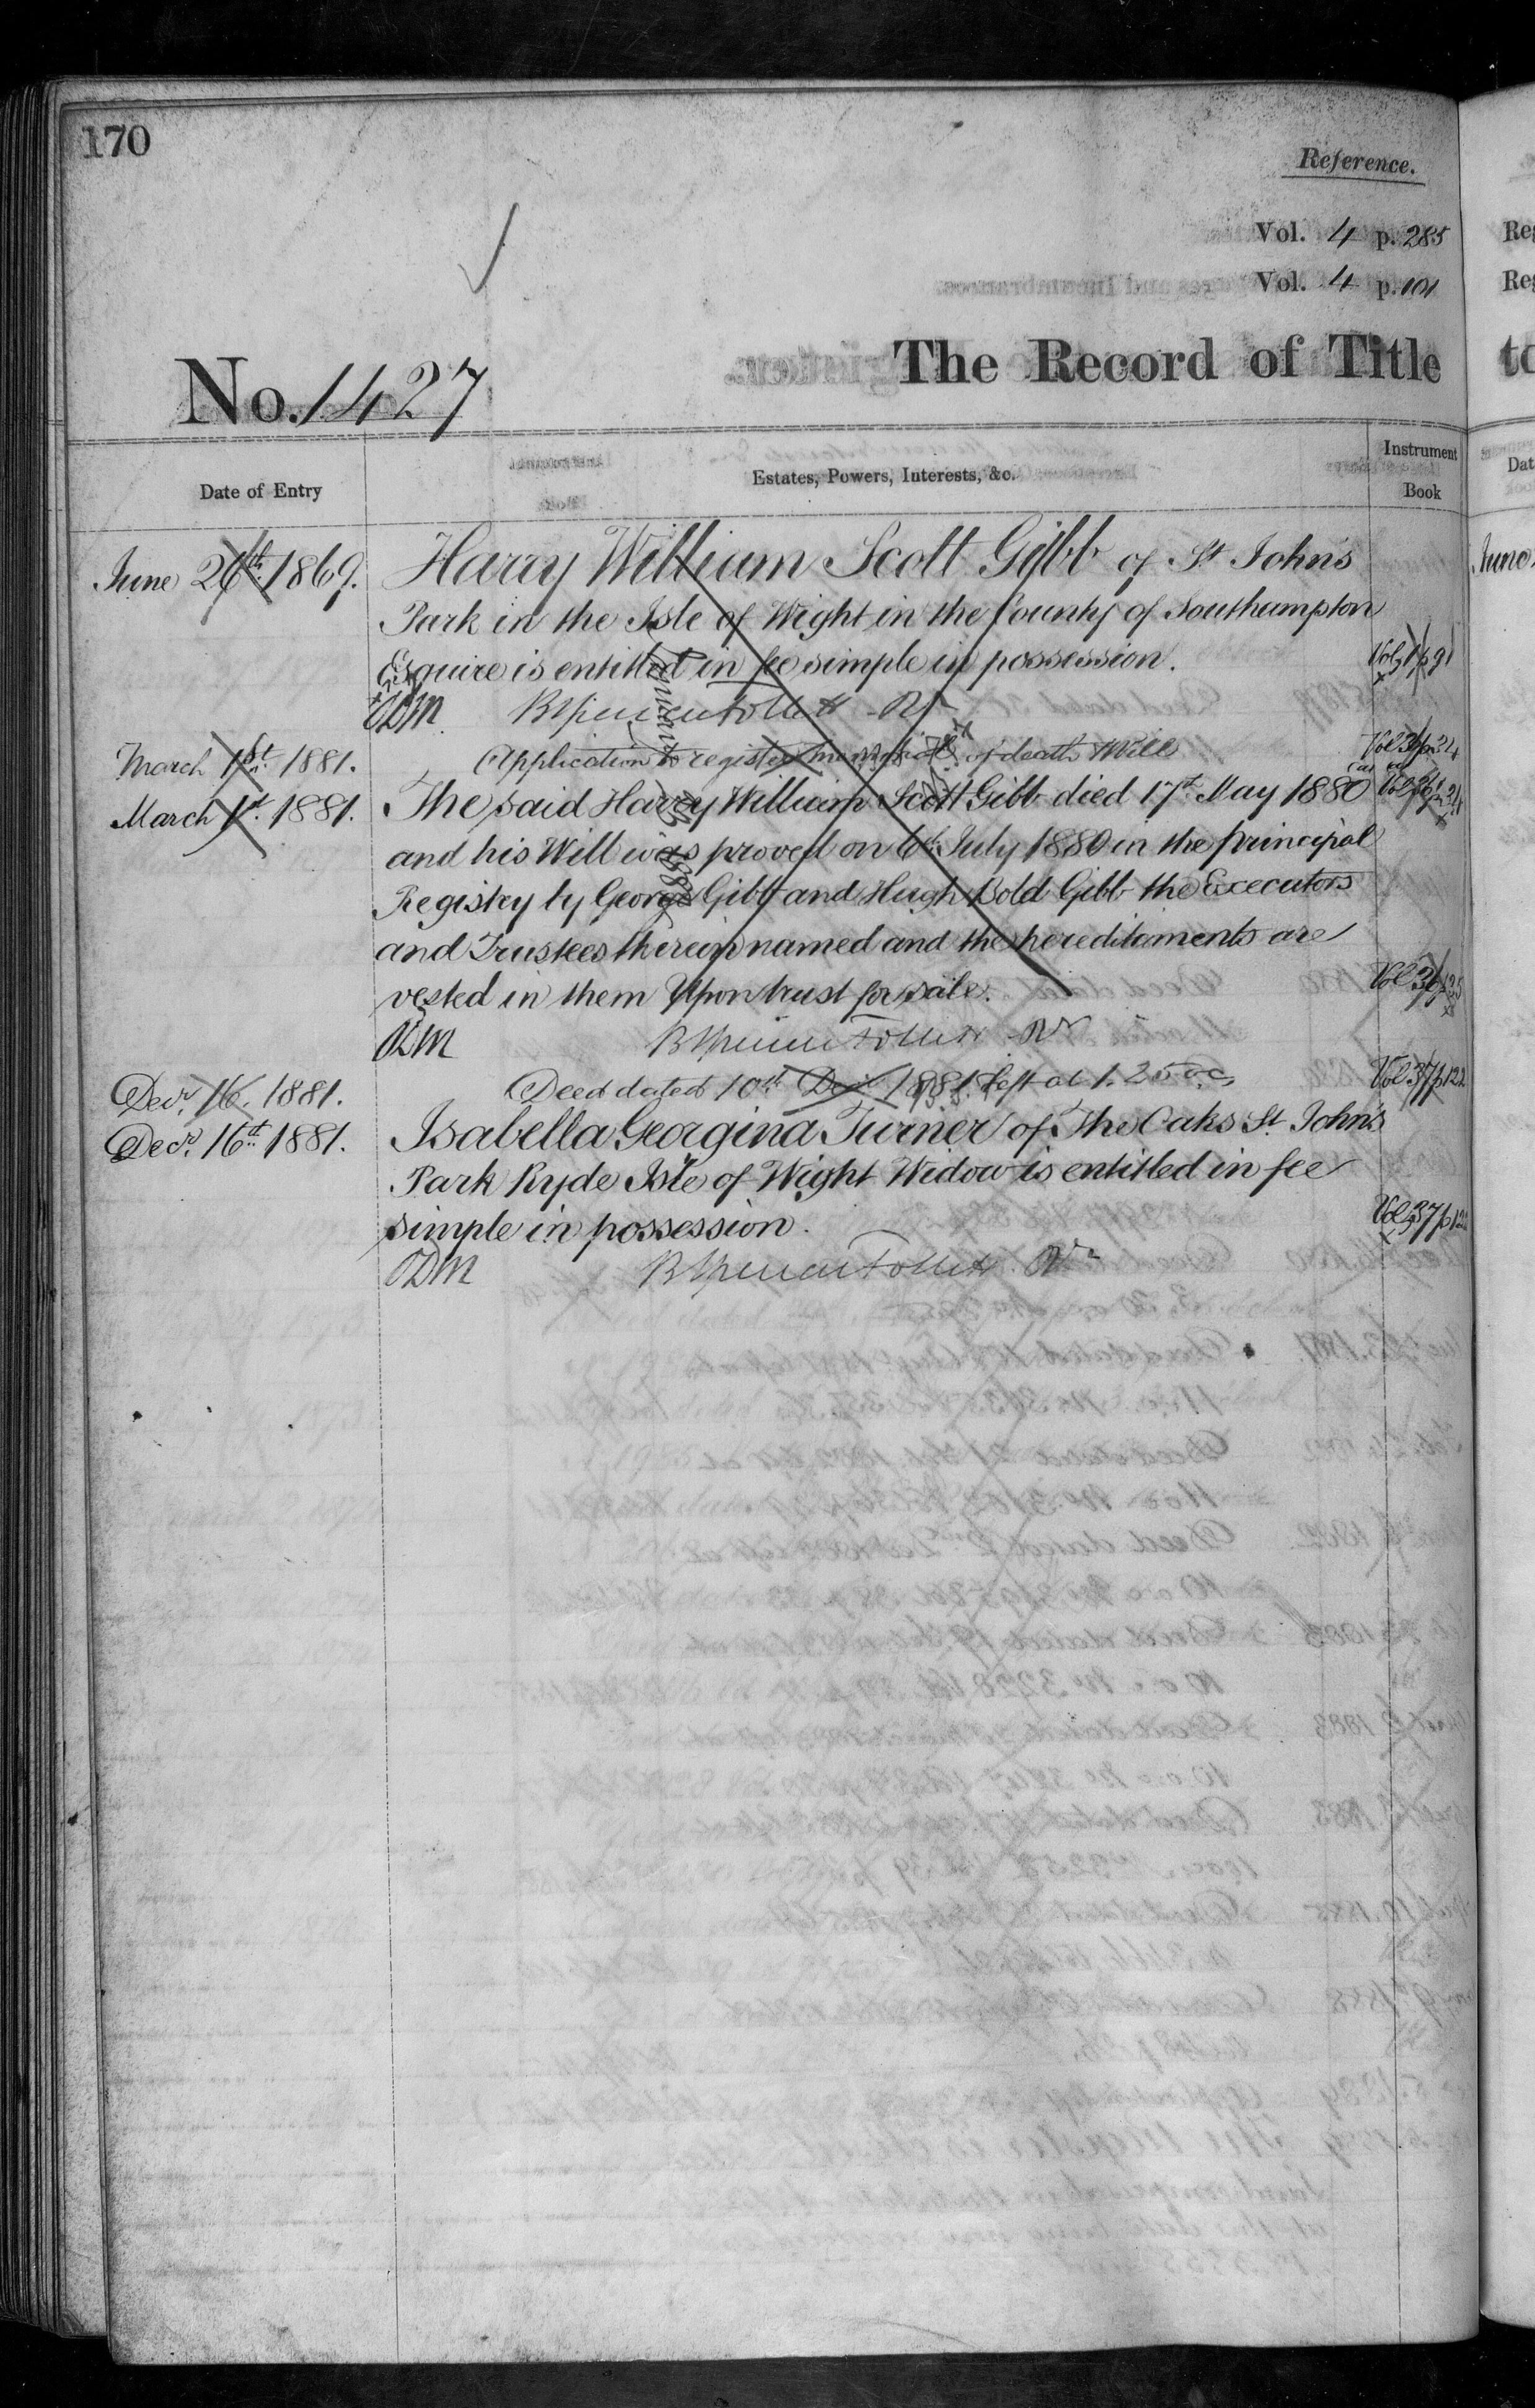 170
Reference.
Vol. 4 p. 285
Vol. 4 p. 101
No. 1427
The Record of Title
Date of Entry
Estates, Powers, Interests, &c.
Instrument Book
June 26th 1869. Harry William Scott Gibb of St John's
Park in the Isle of Wight in the County of Southampton
Esquire is entitled in fee simple in possession. Vol 1 p 91
ODM BSpencer Follett Rr
March 1st 1881. Application to register memorial of death & Will Vol 36 p 24
March 1st 1881. The said Harry William Scott Gibb died 17th May 1880 Vol 36 p 24
and his Will was proved on 6th July 1880 in the principal
Registry by George Gibb and Hugh Bold Gibb the Executors
and Trustees therein named and the hereditaments are
vested in them Upon trust for sale. Vol 36 p
ODM BSpencer Follett Rr
Decr. 16. 1881. Deed dated 10th Decr 1881. left at 1.25 oc Vol 37 p 122
Decr. 16th 1881. Isabella Georgina Turner of The Oaks St. John's
Park Ryde Isle of Wight Widow is entitled in fee
simple in possession. Vol 37 p 122
ODM BSpencer Follett Rr
Reg
Reg
to
Dat
June